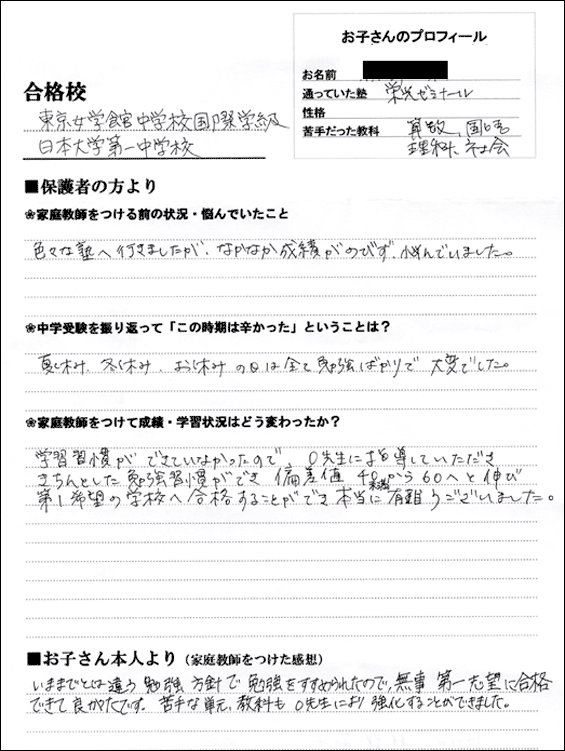 お子さんのプロフィール
お名前
通っていた塾 栄光ゼミナール
性格
苦手だった教科 算数、国語
理科、社会
合格校
東京女学館中学校国際学級
日本大学第一中学校
■保護者の方より
❀家庭教師をつける前の状況・悩んでいたこと
色々な塾へ行きましたが、なかなか成績がのびず、悩んでいました。
❀中学受験を振り返って「この時期は辛かった」ということは？
夏休み、冬休み、お休みの日は全て勉強ばかりで大変でした。
❀家庭教師をつけて成績・学習状況はどう変わったか？
学習習慣ができていなかったので、O先生に指導していただき
きちんとした勉強習慣ができ偏差値40未満から60へと伸び
第1希望の学校へ合格することができ本当に有難うございました。
■お子さん本人より（家庭教師をつけた感想）
いままでとは違う勉強方針で勉強をすすめられたので、無事第一志望に合格
できて良かたです。苦手な単元、教科もO先生により強化することができました。